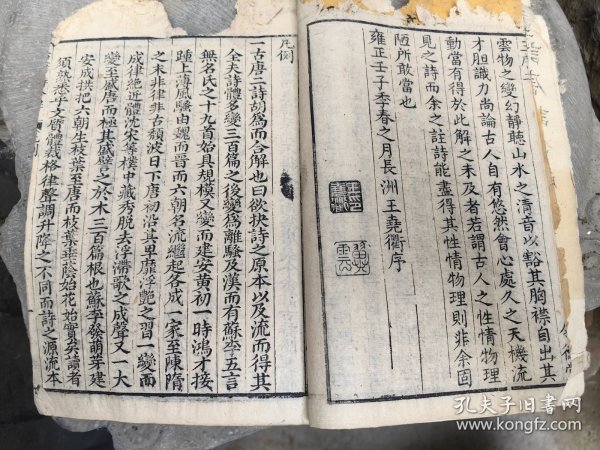 雲物之變幻靜聽山水之清音以豁其胸襟自出其
才胆識力尚論古人自有悠然會心處久之天機流
動當有得於此解之未及者若謂古人之性情物理
見之詩而余之註詩能盡得其性情物理則非余固
陋所敢當也
雍正壬子季春之月長洲王堯衢序
凡例
一古唐二詩胡為而合解也曰欲抉詩之原本以及流而得其
全夫詩體多變三百篇之後變為離騷及漢而有蘇李五言
無名氏之十九首始具規模又變而建安黃初一時鴻才接
踵上溥風騷由魏而晉而六朝名流繼起各成一家至陳隋
之末非律非古頹波日下唐初沿其卑靡浮艷之習一變而
成律絶近體沈宋等樓中藏秀脫去浮滯歌之成聲又一大
變至盛唐而極其盛譬之於木三百篇根也蘇李發萌芽建
安成拱把六朝生枝葉至唐而枝葉垂蔭始花始實矣讀者
須熟悉乎文質體裁格律聲調升降之不同而詩之源流本
孔夫子旧书网
www.kongfz.com